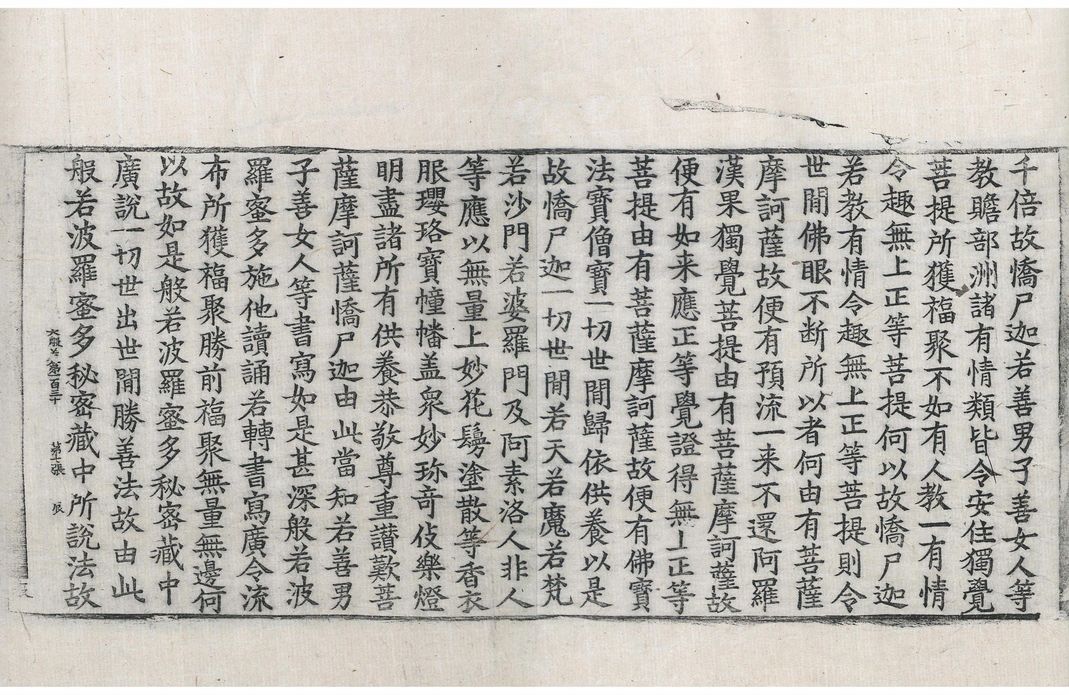 千倍故憍尸迦若善男子善女人等
教贍部洲諸有情類皆令安住獨覺
菩提所獲福聚不如有人教一有情
令趣無上正等菩提何以故憍尸迦
若教有情令趣無上正等菩提則令
世間佛眼不断所以者何由有菩薩
摩訶薩故便有預流一来不還阿羅
漢果獨覺菩提由有菩薩摩訶薩故
便有如来應正等覺證得無上正等
菩提由有菩薩摩訶薩故便有佛寶
法寶僧寶一切世間歸依供養以是
故憍尸迦一切世間若天若魔若梵
若沙門若婆羅門及阿素洛人非人
等應以無量上妙花鬘塗散等香衣
服瓔珞寶幢幡盖衆妙珎奇伎樂燈
明盡諸所有供養恭敬尊重讃歎菩
薩摩訶薩憍尸迦由此當知若善男
子善女人等書寫如是甚深般若波
羅蜜多施他讀誦若轉書寫廣令流
布所獲福聚勝前福聚無量無邊何
以故如是般若波羅蜜多秘密藏中
廣說一切世出世間勝善法故由此
般若波羅蜜多秘密藏中所說法故
大般若第百三十 第張 辰